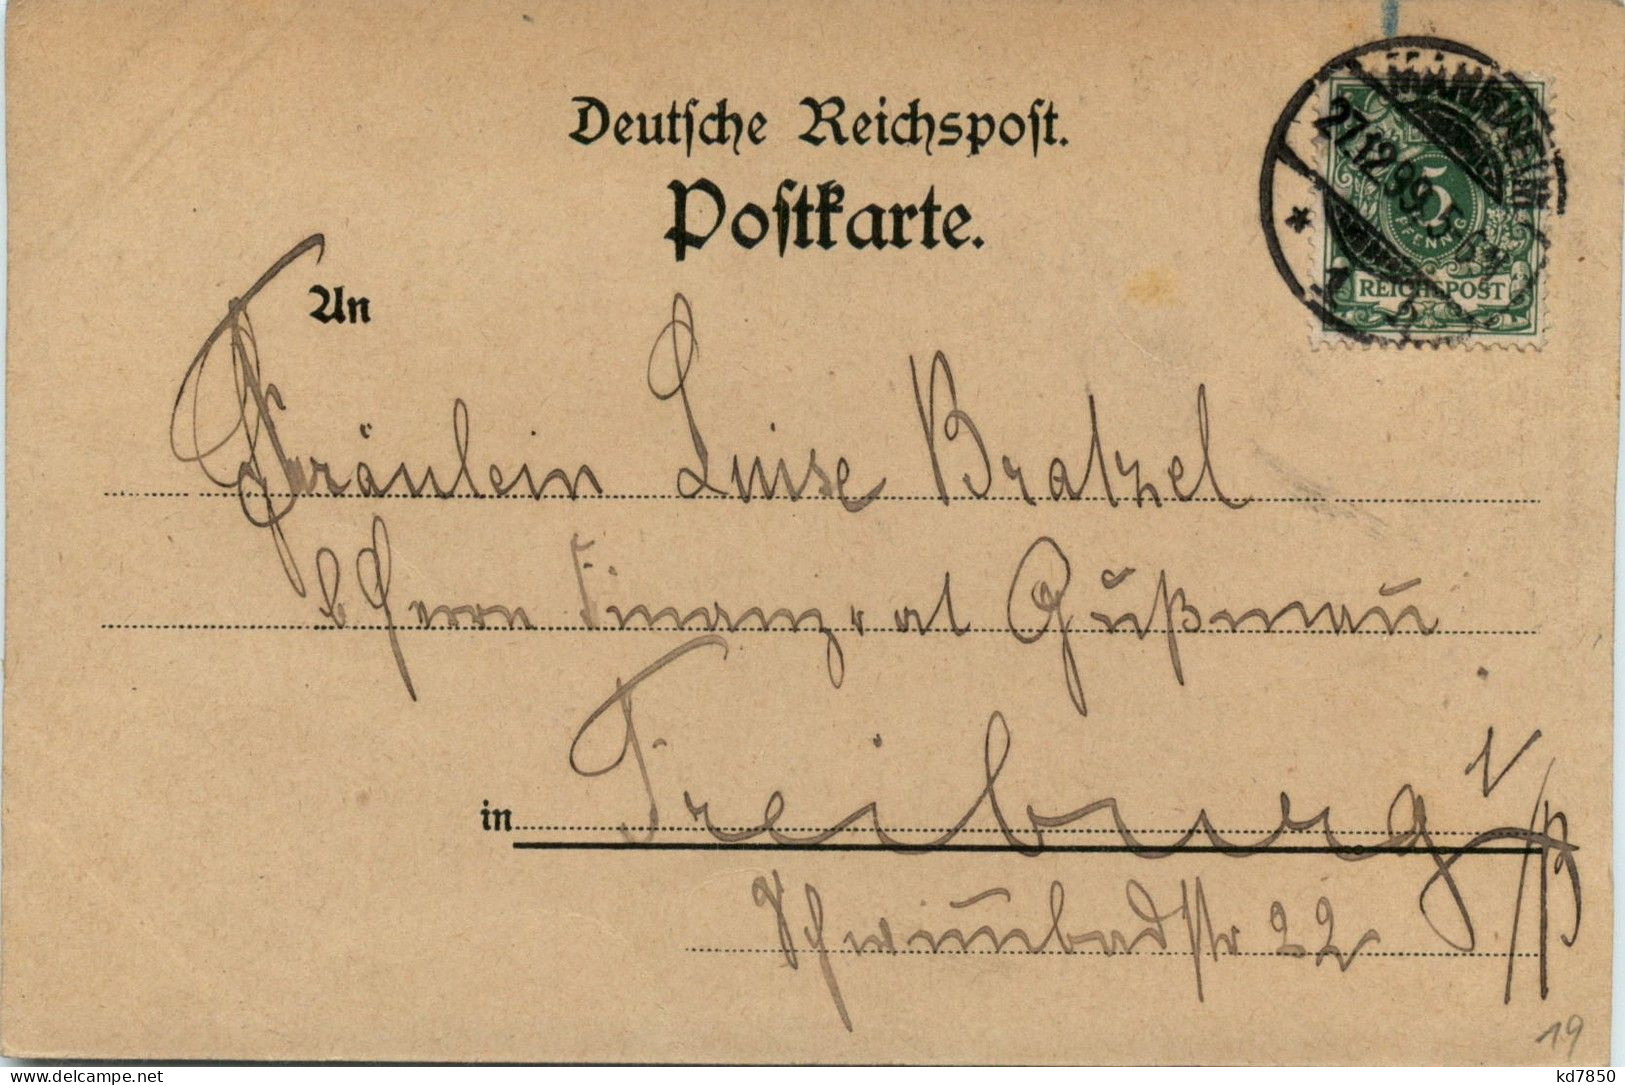 Deutsche Reichspost.
Postkarte.
MANNHEIM
27.12.99. 5-6N
1
5
PFENNIG
REICHSPOST
An
Fräulein Luise Bratzel
b Herrn Finanzrat Gußmann
in Freiburg i/B
Schwimmbadstr 22
19
kd7850